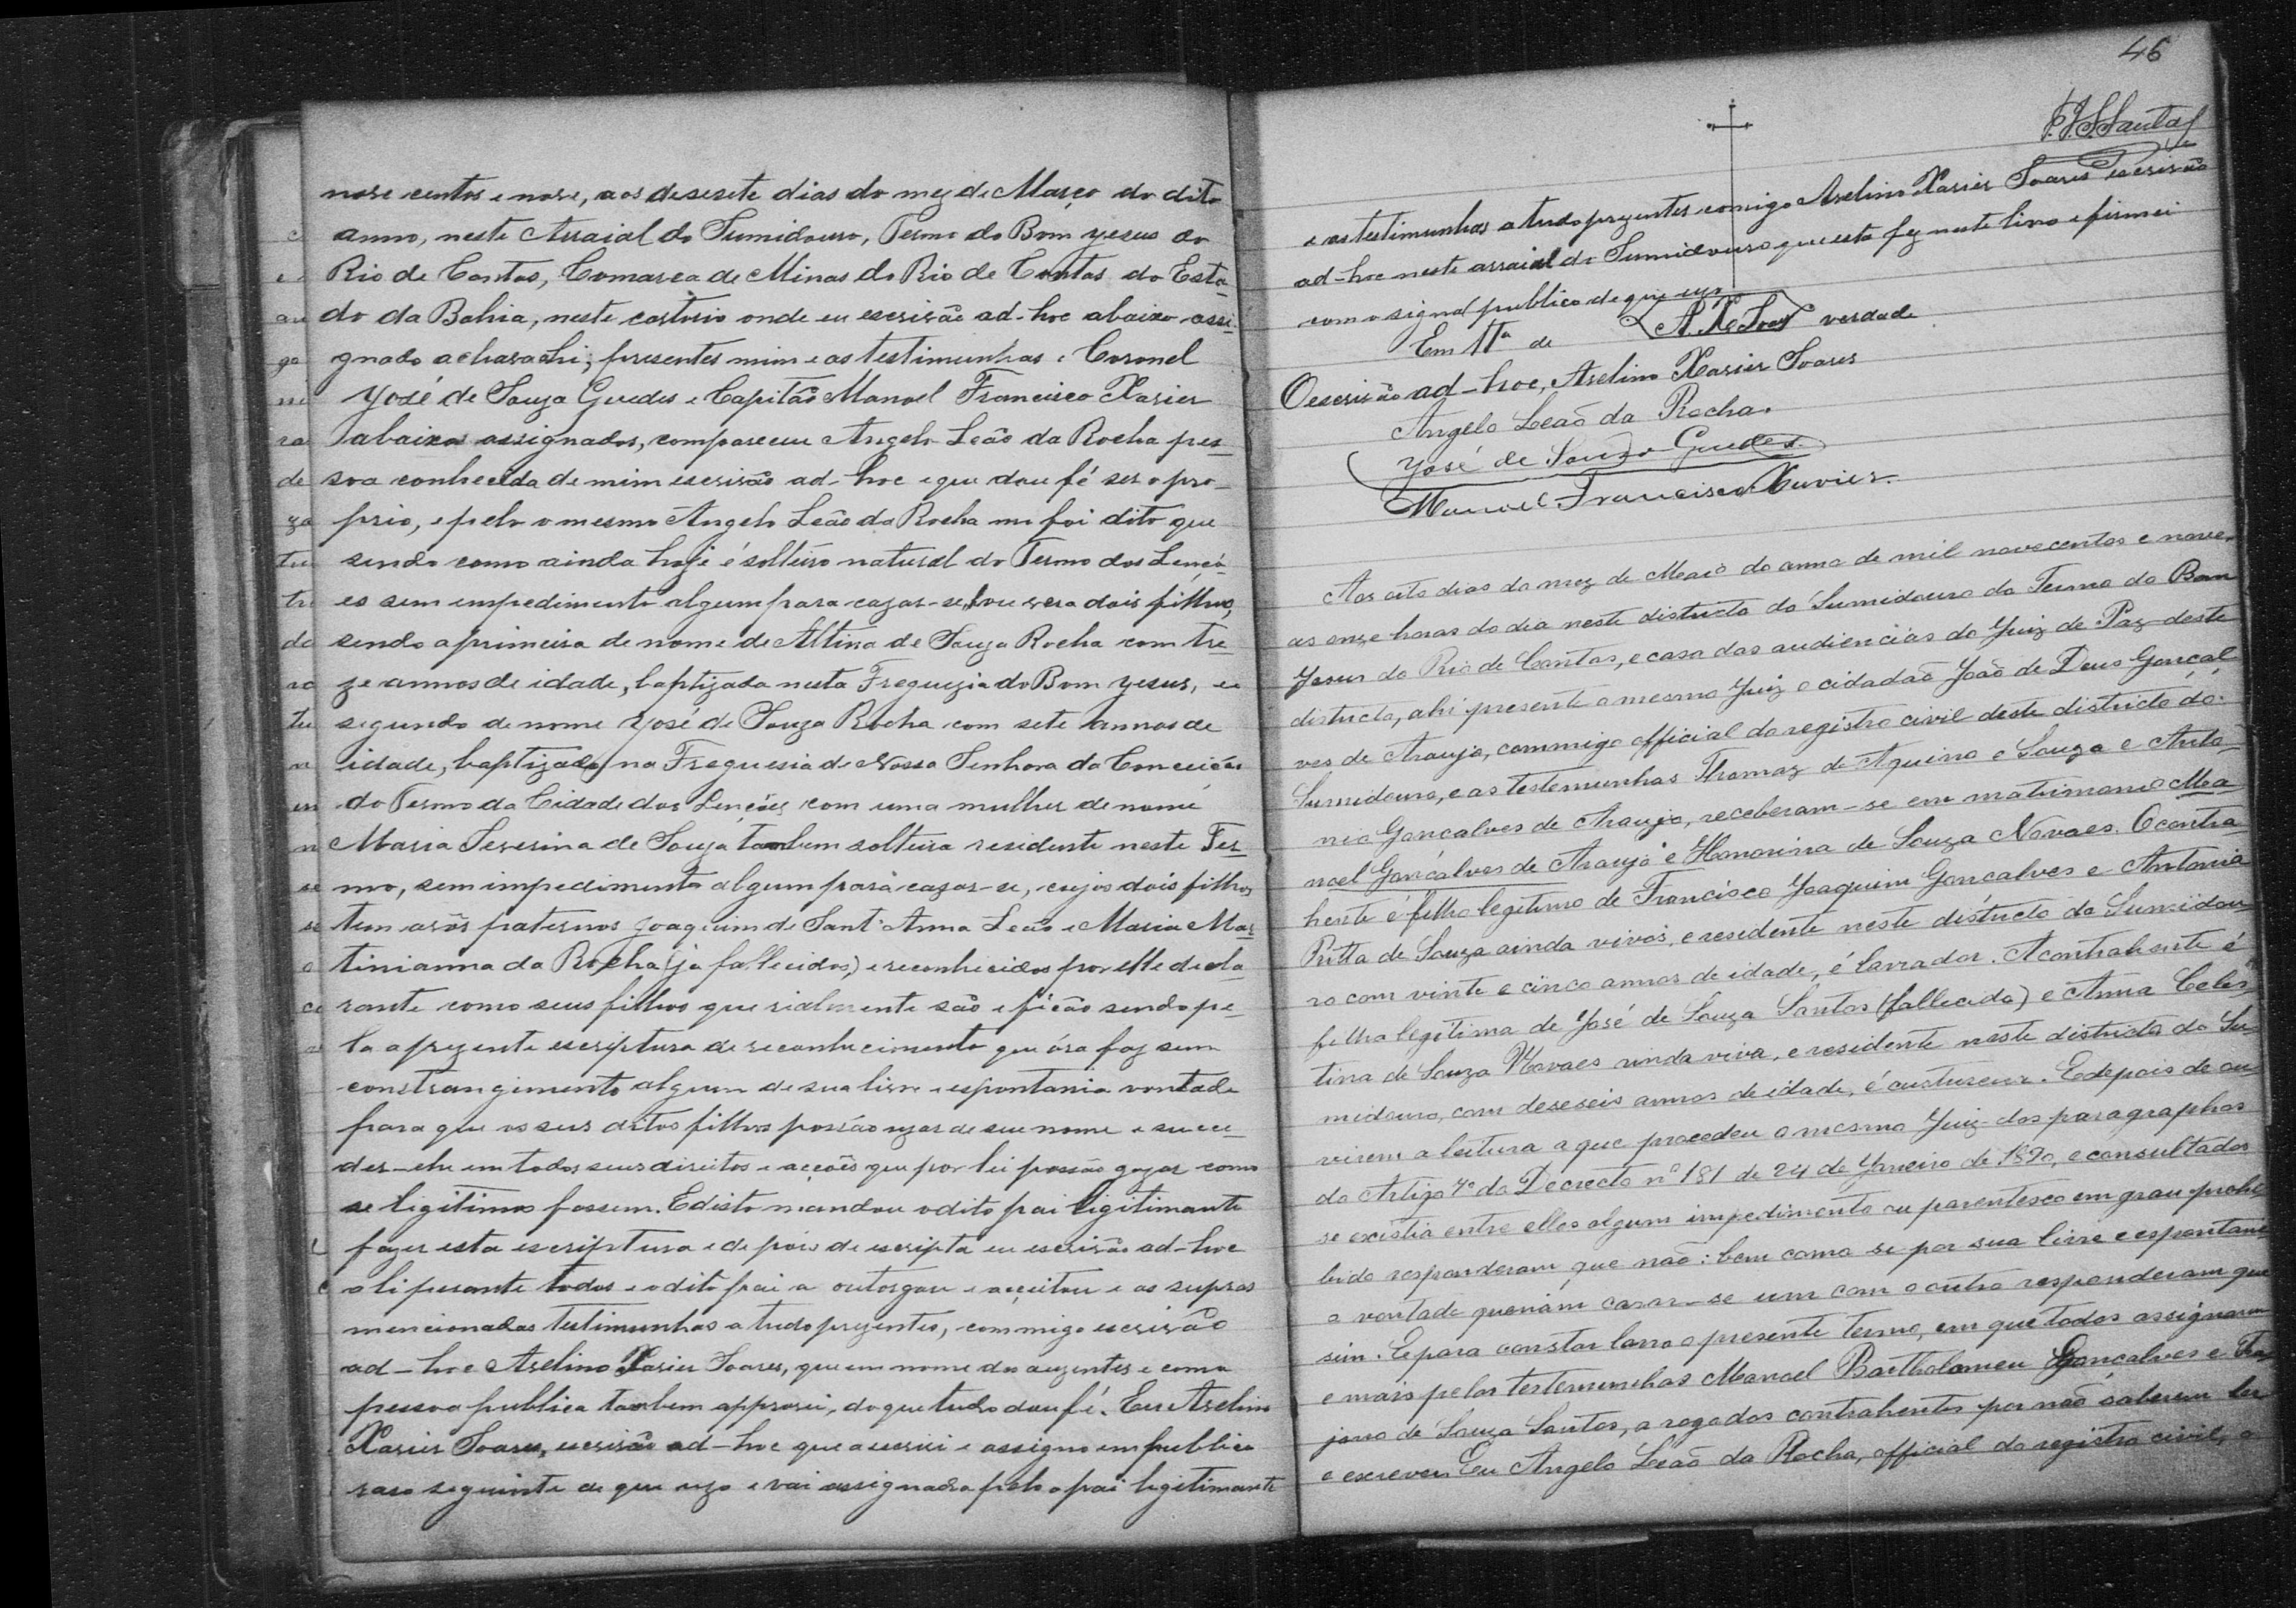 nove centos e nove, aos desesete dias do mez de Março do dito
anno, neste Arraial do Sumidouro, Termo do Bom Yesus do
Rio de Contas, Comarca de Minas do Rio de Contas do Esta-
do da Bahia, neste cartorio onde eu escrivão ad-hoc abaixo assi-
gnado achava ahi, presentes mim e as testimunhas, Coronel
Yosé de Souza Guedes e Capitão Manoel Francisco Xavier
abaixo assignados, compareceu Angelo Leão da Rocha pes-
soa conhecida de mim escrivão ad-hoc e que dou fé ser o pro-
prio, e pelo o mesmo Angelo Leão da Rocha me foi dito que
sendo como ainda hoje é solteiro natural do Termo dos Lençó-
es sem empedimento algum para cazar-se, houvera dois filhos,
sendo a primeira de nome de Altina de Souza Rocha com tre-
ze annos de idade, baptizada nesta Freguezia do Bom Yesus, e o
segundo de nome Yosé de Souza Rocha com sete annos de
idade, baptizado na Freguesia de Nossa Senhora da Conceição
do Termo da Cidade dos Lençóes, com uma mulher de nome
Maria Severina de Souza tambem solteira residente neste Ter-
mo, sem impedimento algum para cazar-se, cujos dois filhos
tem avós paternos Joaquim de Sant'Anna Leão e Maria Mar-
tinianna da Rocha (já fallecidos) e reconhecidos por elle decla-
rante como seus filhos que rialmente são e ficão sendo pe-
la a prezente escriptura de reconhecimento que óra faz sem
constrangimento algum de sua livre e espontania vontade
para que os seus ditos filhos possão uzar de seu nome e succe-
der-lhe em todos seus direitos e acções que por lei possão gozar como
se ligitimos fossem. E disto mandou o dito pai ligitimante
fazer esta escriptura e depois de escripta eu escrivão ad-hoc
a li perante todos e o dito pai a outorgou e acceitou e as supras
mencionadas testimunhas a tudo prezentes, commigo escrivão
ad-hoc Avelino Xavier Soares, que em nome dos auzentes e como
pessoa publica tambem approvei, do que tudo dou fé. Eu Avelino
Xavier Soares, escrivão ad-hoc que a escrivi e assigno em publico
raso seguinte de que uzo e vai assignado pelo o pai ligitimante
46
e as testimunhas a tudo prezentes comigo Avelino Xavier Soares escrivão
ad-hoc neste arraial do Sumidouro que esta fez neste livro e firmei
com o signal publico de que uzo
Em tt.ª de A. X. Soares verdade
O escrivão ad-hoc, Avelino Xavier Soares
Angelo Leão da Rocha.
Yosé de Souza Guedes.
Manoel Francisco Xavier.
Aos oito dias do mez de Maio do anno de mil novecentos e nove,
as onze horas do dia neste districto do Sumidouro do Termo do Bom
Yesus do Rio de Contas, e casa das audiencias do Yuiz de Paz deste
districto, ahi presente o mesmo Yuiz o cidadão João de Deus Gonçal-
ves de Araujo, commigo official do registro civil deste districto do
Sumidouro, e as testemunhas Thomaz de Aquino e Souza e Anto-
nio Gonçalves de Araujo, receberam-se em matrimonio Ma-
noel Gonçalves de Araujo e Honorina de Souza Novaes. O contra-
hente é filho legitimo de Francisco Yoaquim Gonçalves e Antonia
Ritta de Souza ainda vivos, e residente neste districto do Sumidou-
ro com vinte e cinco annos de idade, é lavrador. A contrahente é
filha legitima de Yosé de Souza Santos (fallecido) e Anna Celes-
tina de Souza Novaes ainda viva, e residente neste districto do Su-
midouro, com deseseis annos de idade, é custureira. E depois de ou-
virem a leitura a que procedeu o mesmo Yuiz dos paragraphos
do Artigo 7º do Decreto nº 181 de 24 de Yaneiro de 1890, e consultados
se existia entre elles algum impedimento ou parentesco em grau prohi-
bido responderam que não: bem como se por sua livre e espontane-
a vontade queriam casar-se um com o outro responderam que
sim. E para constar lavro o presente termo, em que todos assignaram
e mais pelas testemunhas Manoel Bartholomeu Gonçalves e Tra-
jano de Souza Santos, a rogo dos contrahentes por não saberem ler
e escrever. Eu Angelo Leão da Rocha, official do registro civil, o